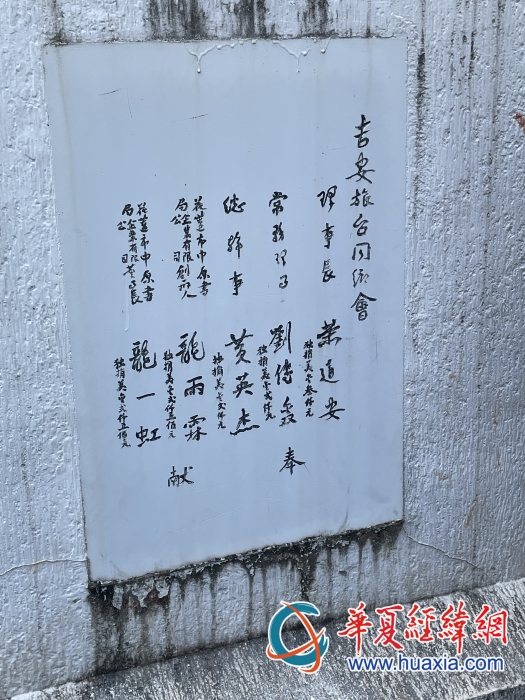 吉安旅台同鄉會
理事長 葉道安 獨捐美金叁仟元
常務理事 劉傳 獨捐美金弍仟元 奉
總幹事 黃英杰 獨捐美金弍仟元
花蓮市中原書局企業有限公司創辦人 龍雨霖 獨捐美金弍仟五佰元 献
花蓮市中原書局企業有限公司董事長 龍一虹 獨捐美金弍仟五佰元
華夏經緯網
www.huaxia.com